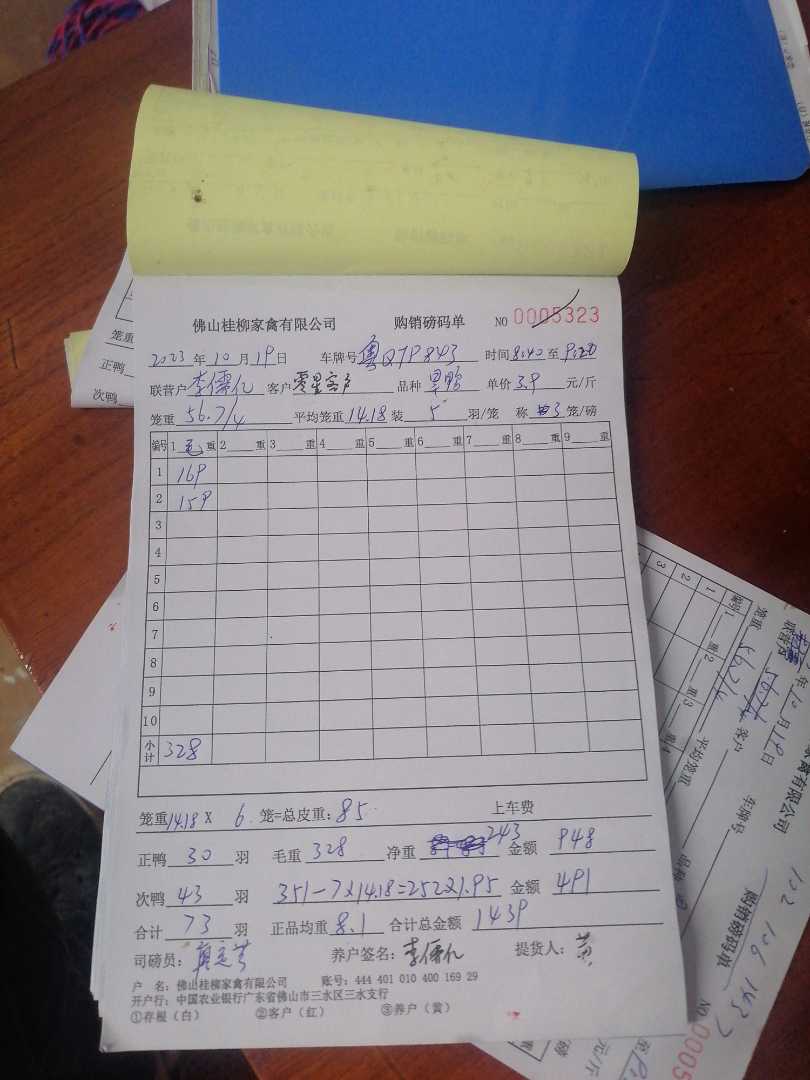 佛山桂柳家禽有限公司 购销磅码单 NO 0005323
2023年10月19日 车牌号 粤Q7P843 时间 8:40 至 9:20
联营户 李儒亿 客户 零星客户 品种 单价 3.9 元/斤
笼重 56.7/4 平均笼重 14.18 装 5 羽/笼 称 3 笼/磅
编号 1 毛 重 2 重 3 重 4 重 5 重 6 重 7 重 8 重 9 重
1 169
2 159
3
4
5
6
7
8
9
10
小计 328
笼重 14.18 X 6 笼=总皮重: 85 上车费
正鸭 30 羽 毛重 328 净重 243 金额 948
次鸭 43 羽 351-7x14.18=252x1.95 金额 491
合计 73 羽 正品均重 8.1 合计总金额 1439
司磅员: 养户签名: 李儒亿 提货人: 黄
户 名: 佛山桂柳家禽有限公司 账号: 444 401 010 400 169 29
开户行: 中国农业银行广东省佛山市三水区三水支行
①存根（白） ②客户（红） ③养户（黄）
笼重
正鸭
次鸭
购销磅码单
NO 0005
车牌号
客户
平均笼重
笼重 56.7/4
联营户
年10月19日
编号 1 重 2 重 3 重 4
1
2
3
元/斤